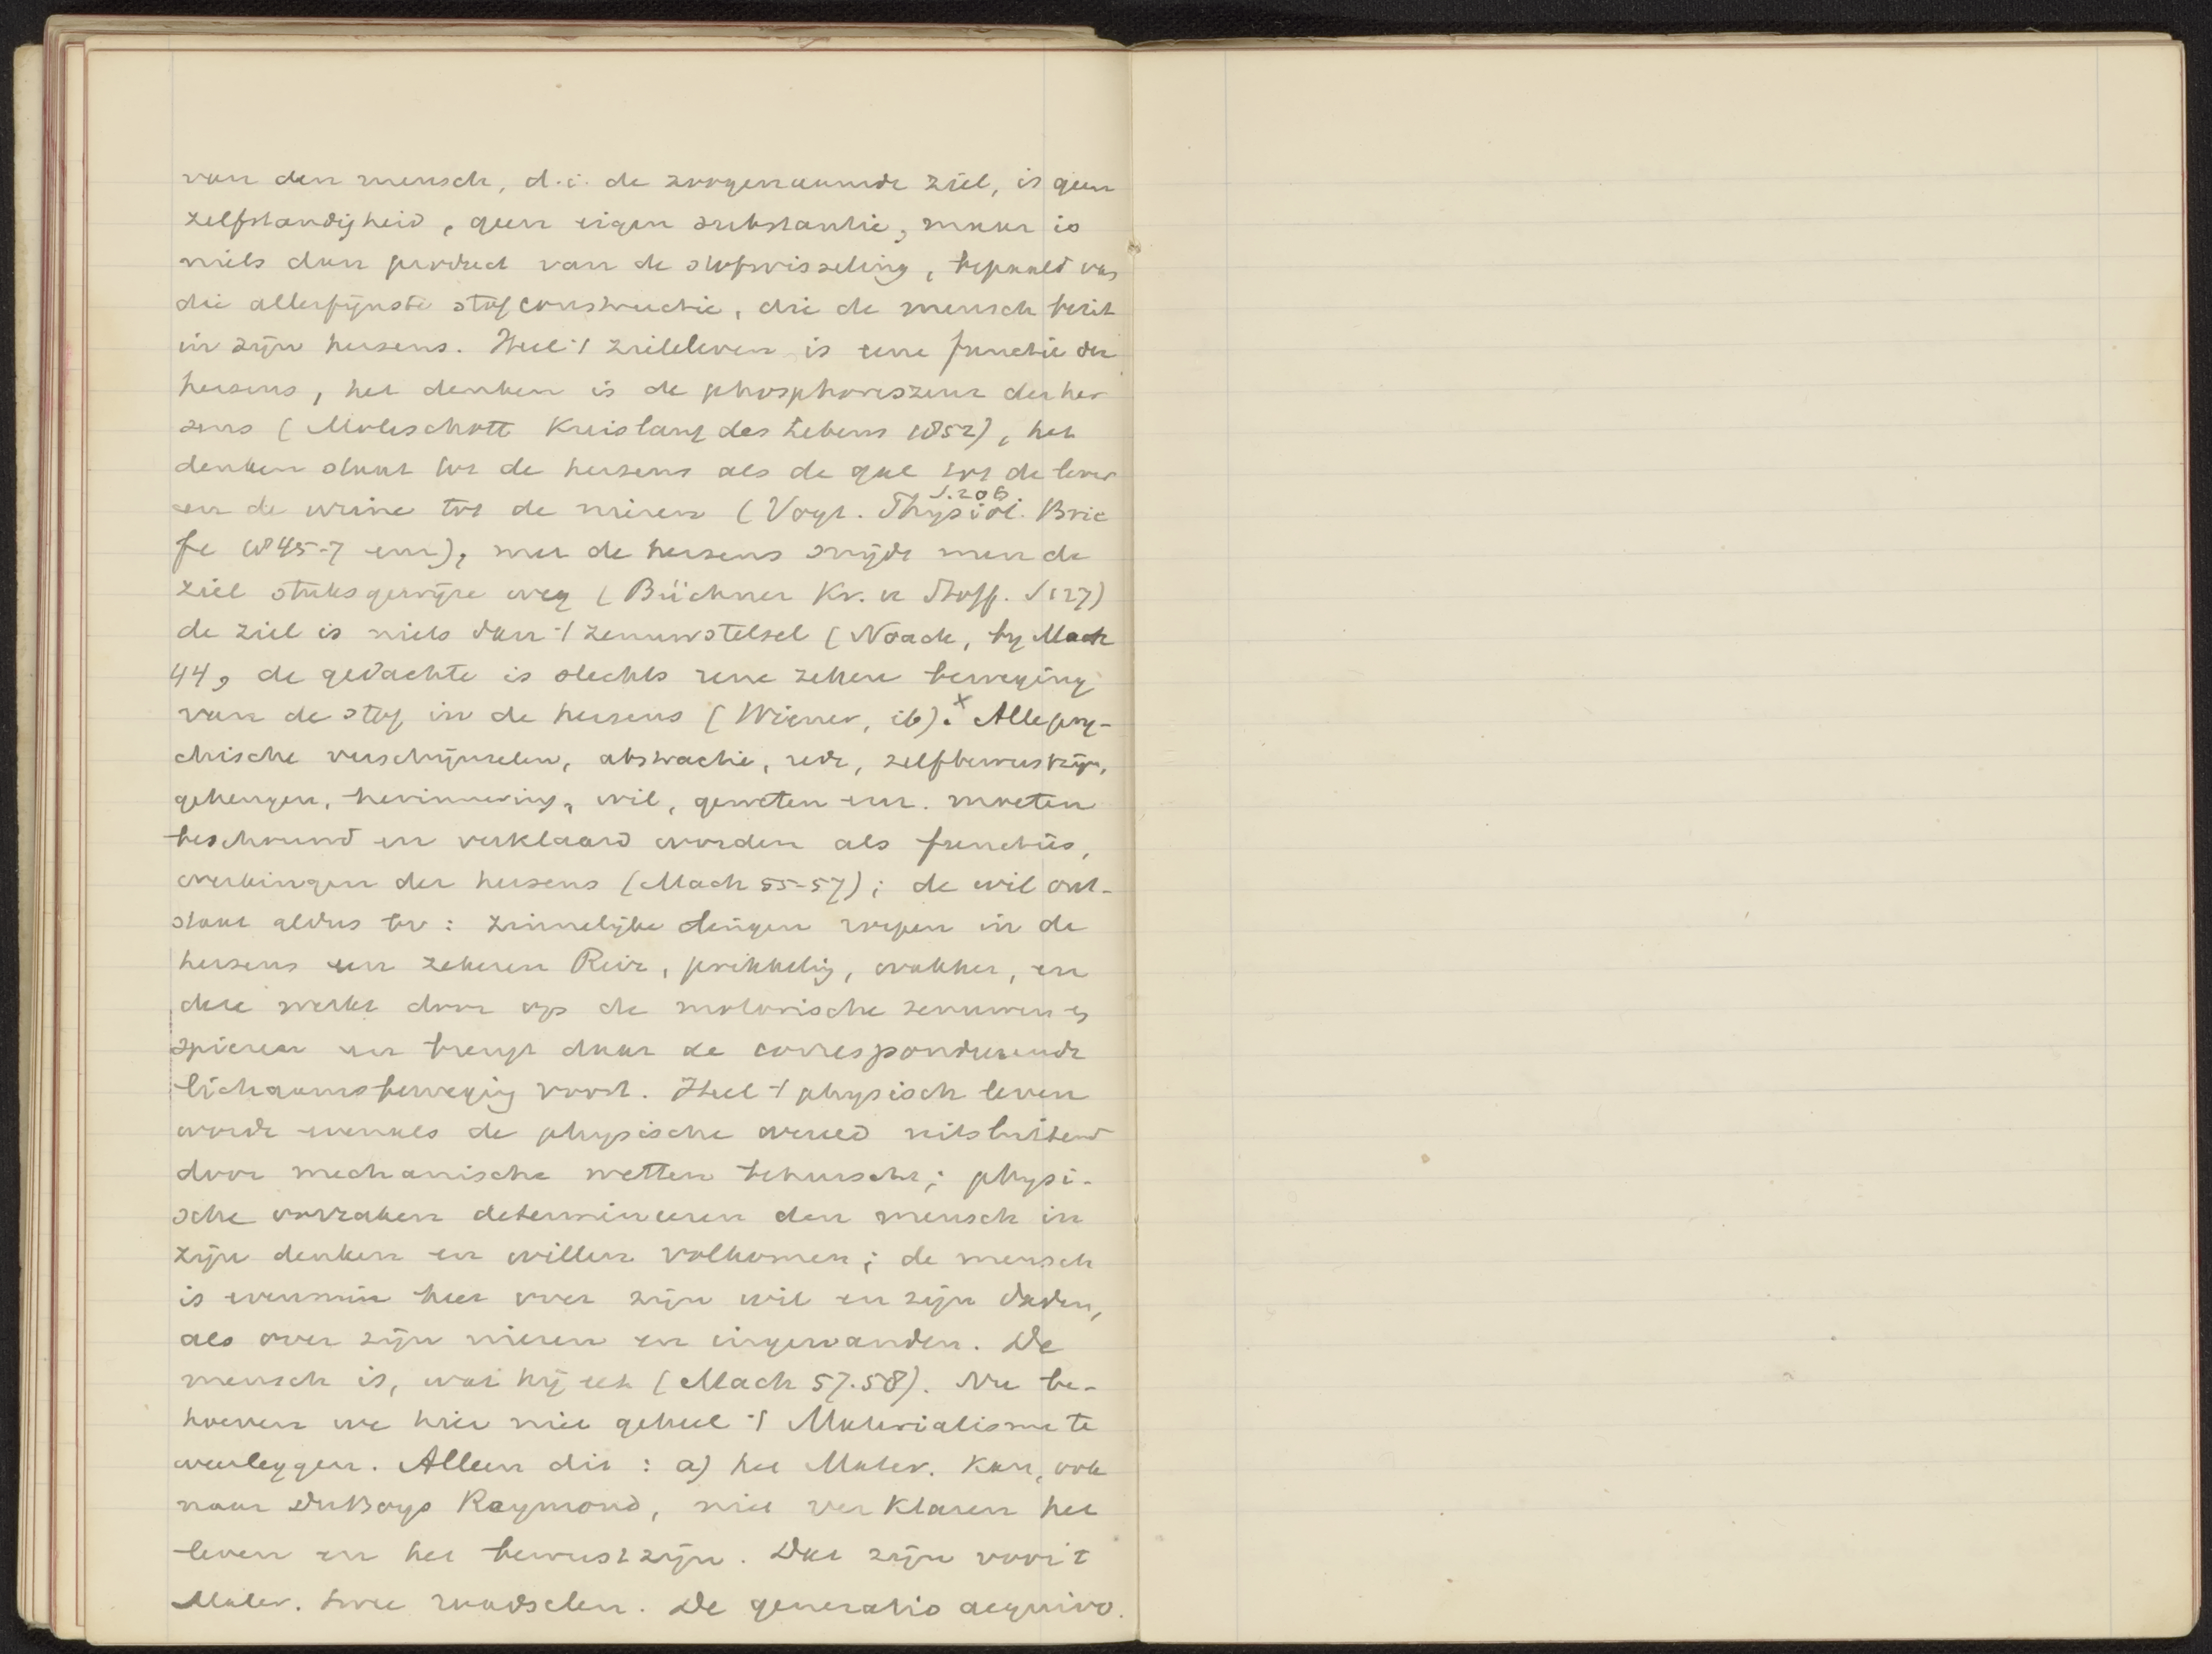 van den mensch, d.i. de zoogenaamde ziel, is geen
zelfstandigheid, geen eigen substantie, maar is
niets dan product van de stofwisseling, bepaald van
die allerfijnste stofconstructie, die de mensch bezit
in zijn hersens. Heel 't zieleleven is eene functie der
hersens, het denken is de phosphoreszenz der her
sens (Moleschott Kreislauf des Lebens 1852), het
denken staat tot de hersens als de gal tot de lever
en de urine tot de nieren (Vogt. Physiol. Brie
S.206
fe 1845-7 enz), met de hersens snijdt men de
ziel stuksgewijze weg (Büchner Kr. u Stoff. S127)
de ziel is niets dan 't zenuwstelsel (Noack, by Mach
44, de gedachte is slechts eene zekere beweging
van de stof in de hersens (Wiener, ib). x Alle psy-
chische verschijnselen, abstractie, rede, zelfbewustzijn,
geheugen, herinnering, wil, geweten enz. moeten
beschouwd en verklaard worden als functies,
werkingen der hersens (Mach 55-57); de wil ont-
staat aldus bv: zinnelijke dingen roepen in de
hersens een zekeren Reiz, prikkeling, wakker, en
deze werkt door op de motorische zenuwen en
spieren en brengt daar de correspondeerende
lichaamsbeweging voort. Heel 't physisch leven
wordt evenals de physische wereld uitsluitend
door mechanische wetten beheerscht; physi-
sche oorzaken determineeren den mensch in
zijn denken en willen volkomen; de mensch
is evenmin heer over zijn wil en zijn daden,
als over zijn nieren en ingewanden. De
mensch is, wat hij eet (Mach 57.58). Nu be-
hoeven we hier niet geheel 't Materialisme te
weerleggen. Alleen dit: a) het Mater. kan, ook
naar DuBoys Raymond, niet verklaren het
leven en het bewustzijn. Dat zijn voor 't
Mater. twee raadselen. De generatio aequivo.